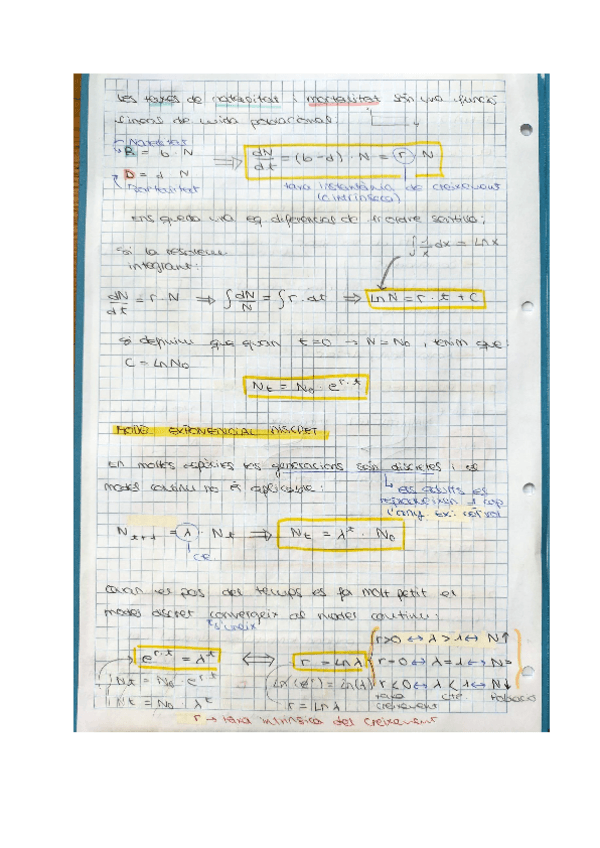 Les taxes de natalitat i mortalitat són una funció
lineas de mida poblacional:
Natalitat
B = b · N ⇒ dN/dt = (b-d) · N = r · N
D = d · N
mortalitat
taxa instantània de creixement
(o intrínseca)
Ens queda una eq diferencial de 1r ordre senzilla:
∫ 1/x dx = Ln x
Si la resolem
integrant:
dN/dt = r · N ⇒ ∫ dN/N = ∫ r · dt ⇒ Ln N = r · t + C
Si definim que quan t=0 → N = N₀, tenim que
C = Ln N₀
Nt = N₀ · e^r·t
MODEL EXPONENCIAL DISCRET
En moltes espècies les generacions són discretes i el
model continu no és aplicable:
els adults es
reprodueixen 1 cop
l'any. Ex: cérvol
N t+1 = λ · Nt ⇒ Nt = λ^t · N₀
cte
Quan el pas del temps es fa molt petit el
model discret convergeix al model continu:
s'uneix
r>0 ↔ λ>1 ↔ N↑
e^r·t = λ^t ⇔ r = Ln λ r=0 ↔ λ=1 ↔ N=
Nt = N₀ · e^r·t Ln(e^r) = Ln(λ) r<0 ↔ λ<1 ↔ N↓
Nt = N₀ · λ^t r = Ln λ taxa creixement cte Població
r → taxa intrínsica del creixement